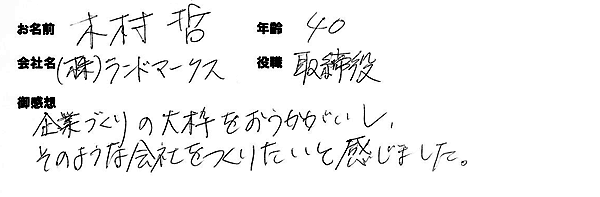 お名前 木村 哲 年齢 40
会社名 (株)ランドマークス 役職 取締役
御感想
企業づくりの大枠をおうかがいし、
そのような会社をつくりたいと感じました。